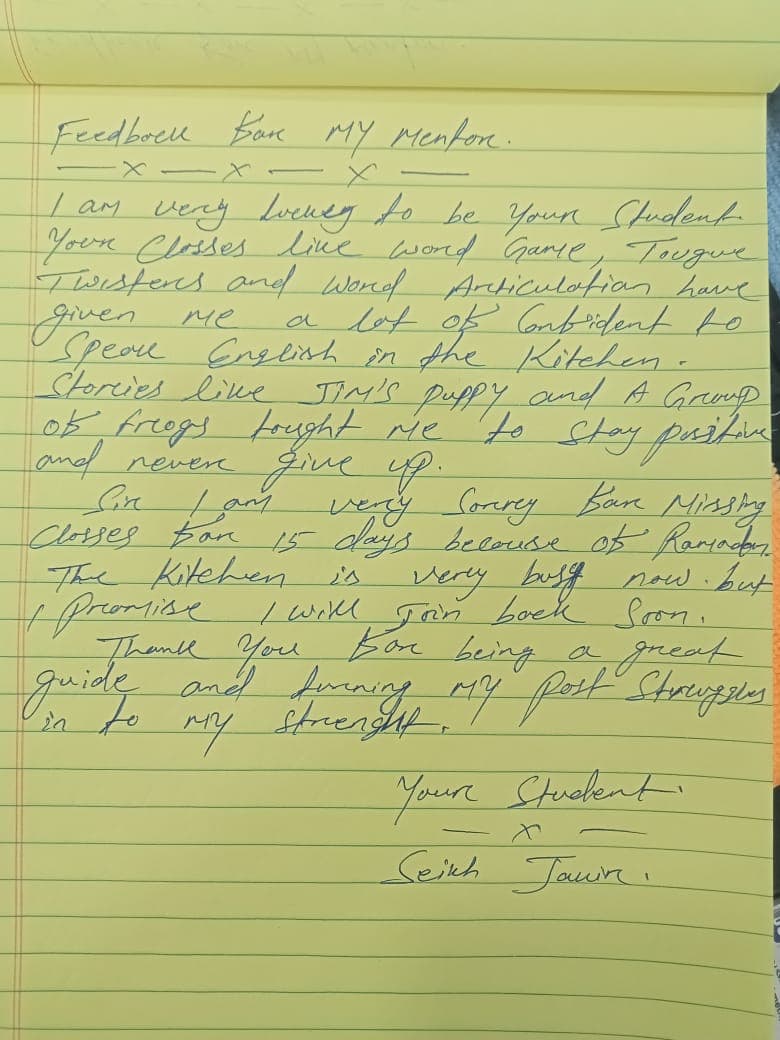 Feedback For My Mentor.
— x — x — x —
I am very lucky to be Your Student.
Your Classes like word Game, Tougue
Twisters and Word Articulation have
given me a lot of Confident to
Speak English in the Kitchen.
Stories like JIM'S puppy and A Group
of frogs tought me to Stay positive
and never give up.
Sir I am very Sorry For Missing
Classes For 15 days because of Ramadan.
The Kitchen is very busy now. but
I Promise I will Join back Soon.
Thank You For being a great
guide and turning MY past Struggles
in to my strenght.
Your Student.
— x —
Seikh